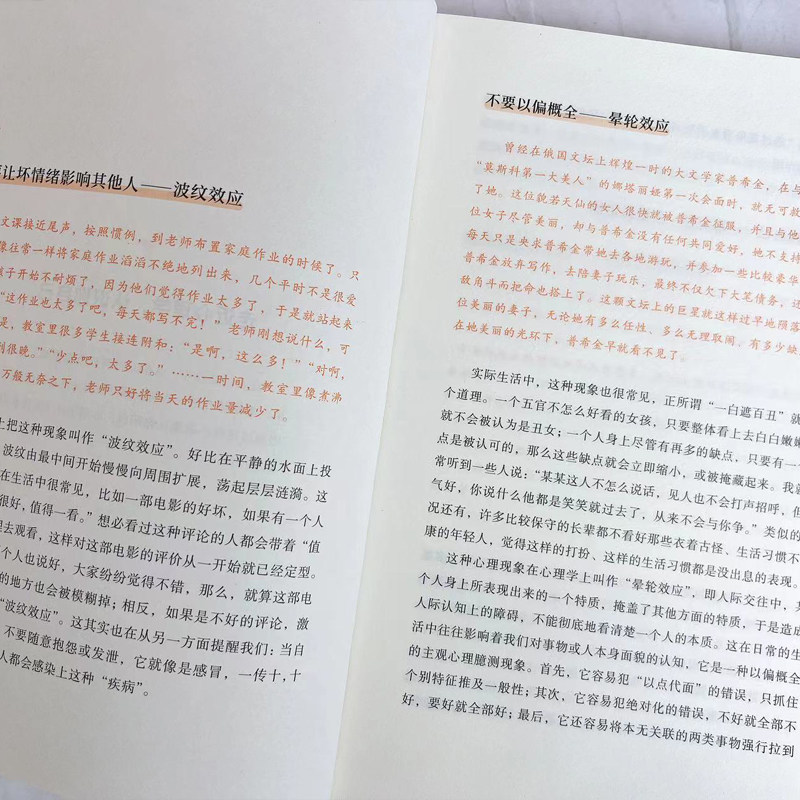 让坏情绪影响其他人——波纹效应
文课接近尾声，按照惯例，到老师布置家庭作业的时候了。只
像往常一样将家庭作业滔滔不绝地列出来，几个平时不是很爱
孩子开始不耐烦了，因为他们觉得作业太多了，于是就站起来
“这作业也太多了吧，每天都写不完！”老师刚想说什么，可
是，教室里很多学生接连附和：“是啊，这么多！”“对啊，
到很晚。”“少点吧，太多了。”……一时间，教室里像煮沸
万般无奈之下，老师只好将当天的作业量减少了。
上把这种现象叫作“波纹效应”。好比在平静的水面上投
波纹由最中间开始慢慢向周围扩展，荡起层层涟漪。这
在生活中很常见，比如一部电影的好坏，如果有一个人
很好，值得一看。”想必看过这种评论的人都会带着“值
去观看，这样对这部电影的评价从一开始就已经定型。
个人也说好，大家纷纷觉得不错，那么，就算这部电
的地方也会被模糊掉；相反，如果是不好的评论，激
“波纹效应”。这其实也在从另一方面提醒我们：当自
不要随意抱怨或发泄，它就像是感冒，一传十，十
人都会感染上这种“疾病”。
不要以偏概全——晕轮效应
曾经在俄国文坛上辉煌一时的大文学家普希金，在与
“莫斯科第一大美人”的娜塔丽娅第一次会面时，就无可救
了她。这位貌若天仙的女人很快就被普希金征服，并且与他
位女子尽管美丽，却与普希金没有任何共同爱好，她不支持
每天只是央求普希金带她去各地游玩，并参加一些比较豪华
普希金放弃写作，去陪妻子玩乐，最终不仅欠下大笔债务，还
敌角斗而把命也搭上了。这颗文坛上的巨星就这样过早地陨落
位美丽的妻子，无论她有多么任性、多么无理取闹。有多少缺
在她美丽的光环下，普希金早就看不见了。
实际生活中，这种现象也很常见，正所谓“一白遮百丑”就
个道理。一个五官不怎么好看的女孩，只要整体看上去白白嫩嫩
就不会被认为是丑女；一个人身上尽管有再多的缺点，只要有一
点是被认可的，那么这些缺点就会立即缩小，或被掩藏起来。我就
常听到一些人说：“某某这人不怎么说话，见人也不会打声招呼，但
气好，你说什么他都是笑笑就过去了，从来不会与你争。”类似的
况还有，许多比较保守的长辈都不看好那些衣着古怪、生活习惯不
康的年轻人，觉得这样的打扮、这样的生活习惯都是没出息的表现。
这种心理现象在心理学上叫作“晕轮效应”，即人际交往中，
个人身上所表现出来的一个特质，掩盖了其他方面的特质，于是造成
人际认知上的障碍，不能彻底地看清楚一个人的本质。这在日常的生
活中往往影响着我们对事物或人本身面貌的认知，它是一种以偏概全
的主观心理臆测现象。首先，它容易犯“以点代面”的错误，只抓住
个别特征推及一般性；其次，它容易犯绝对化的错误，不好就全部不
好，要好就全部好；最后，它还容易将本无关联的两类事物强行拉到